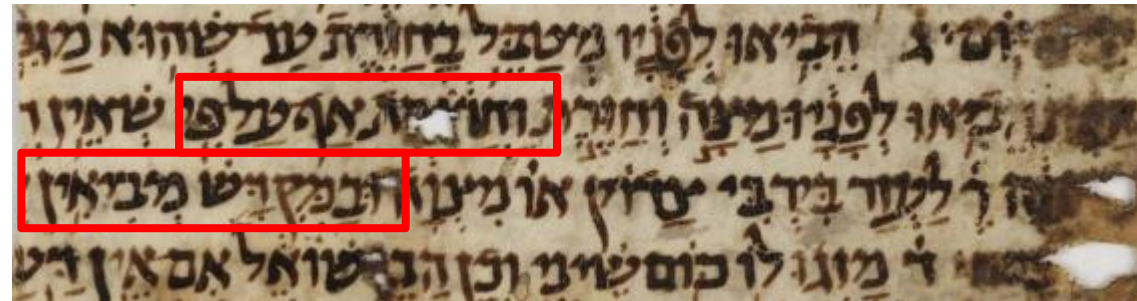 ג הביאו לפניו מיטבל בחזרת עד שהוא מגי
הביאו לפניו מצה וחזרת וחרוסת אף עלפי שאין
ר לעזר בירבי צדוק או מצוה ובמקדש מביאין
ד מזגו לו כוס שיני וכן הבן שואל אם אין דע